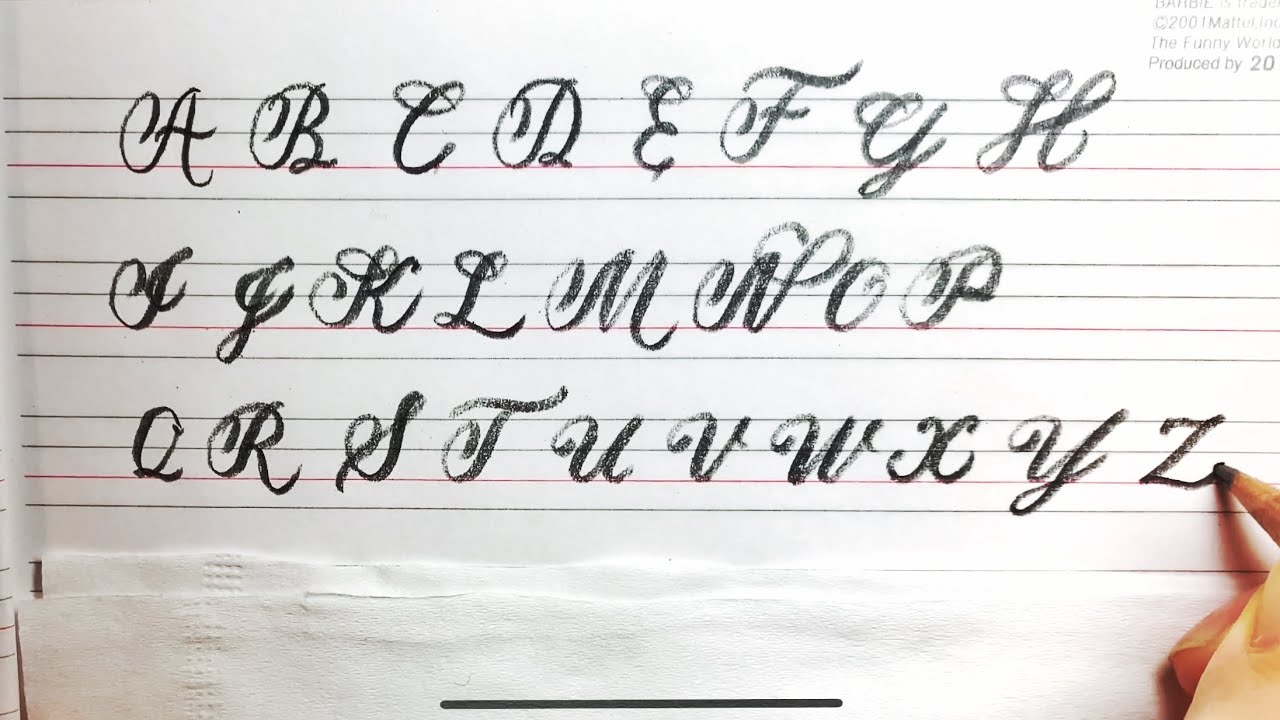 BARBIE is trade
©2001Mattel,Inc
The Funny World
Produced by 20
A B C D E F G H
I J K L M N O P
Q R S T U V W X Y Z